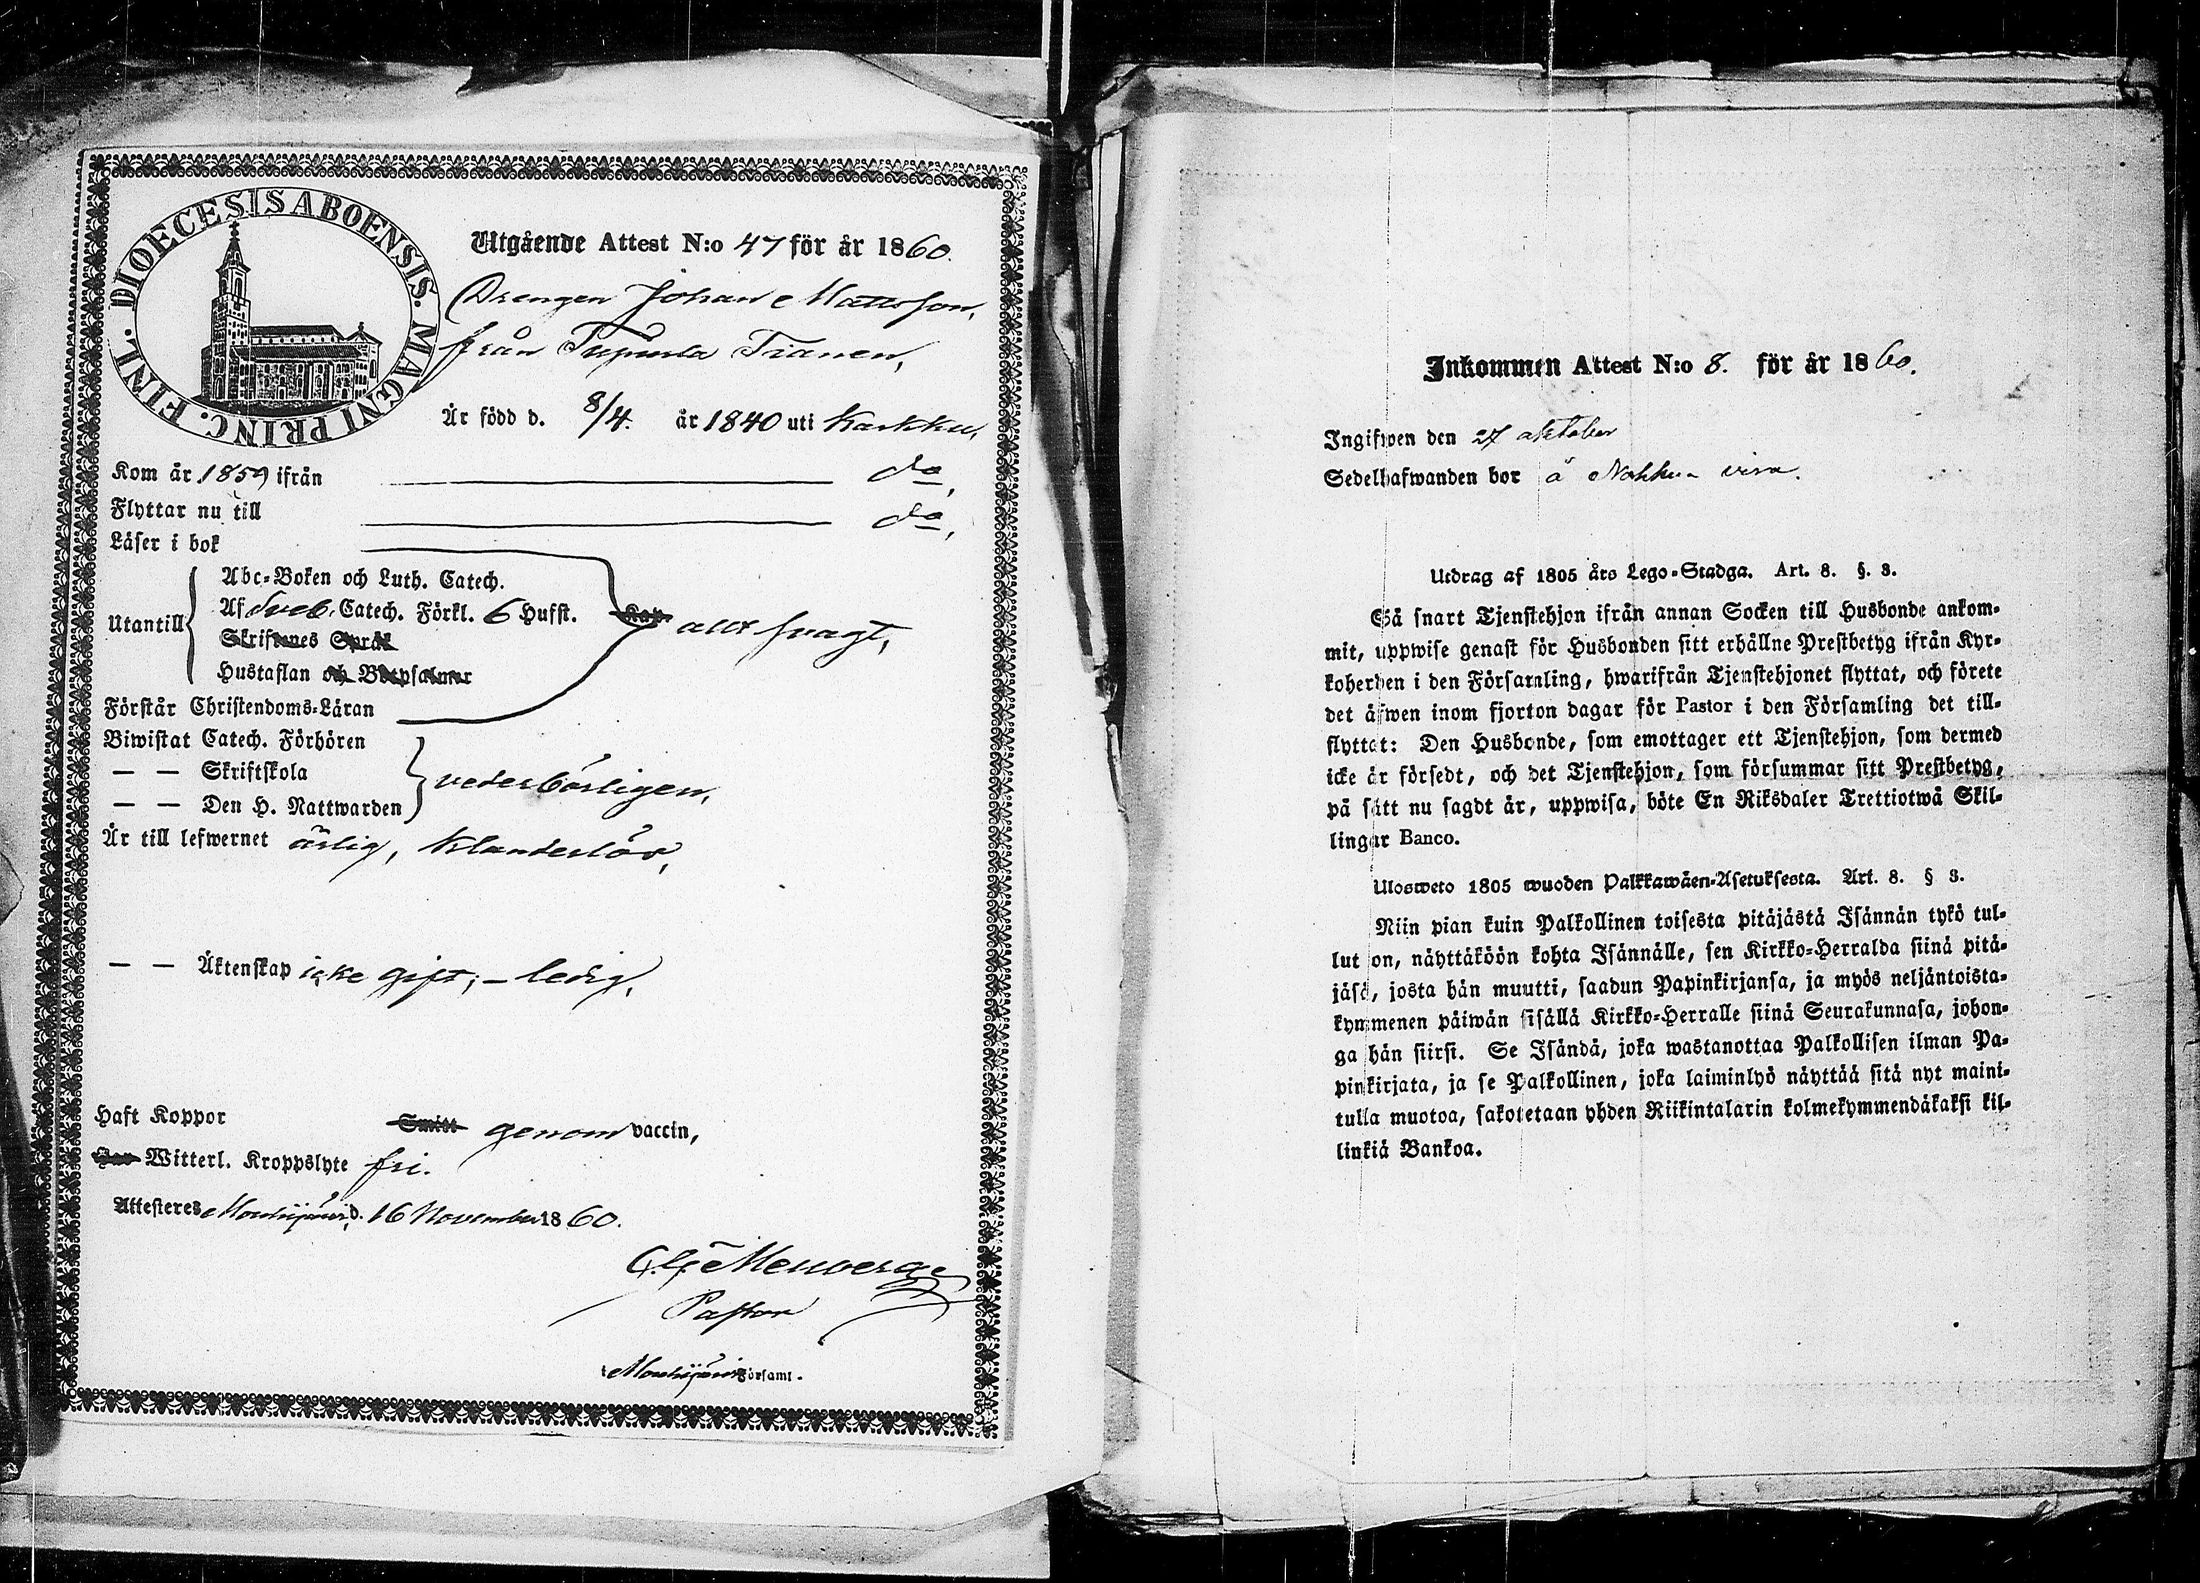 DIOECESIS ABOENSIS. MAGNI PRINC. FINL.
Utgående Attest N:o 47 för år 1860.
Drengen Johan Mattsson,
från
Är född d. 8/4. år 1840 uti Karkku,
Kom år 1859 ifrån do,
Flyttar nu till do,
Läser i bok
Abc-Boken och Luth. Catech.
Utantill Af Sveb. Catech. Förkl. 6 Hufst. Kap. allt svagt,
Skriftenes Språk
Hustaflan och Botpsalmer
Förstår Christendoms-Läran
Biwistat Catech. Förhören
— — Skriftskola wederbörligen,
— — Den H. Nattwarden
Är till lefwernet ärlig, klanderlös,
— — Äktenskap icke gift; – ledig,
Haft Koppor Smitt genom vaccin,
Har Witterl. Kroppslyte fri.
Attesteres Mouhijärvi d. 16 November 1860.
Pastor
i Mouhijärvi Församl.
Inkommen Attest N:o 8. för år 1860.
Ingifwen den 27 oktober
Sedelhafwanden bor å
Utdrag af 1805 års Lego-Stadga. Art. 8. §. 3.
Så snart Tjenstehjon ifrån annan Socken till Husbonde ankom-
mit, uppwise genast för Husbonden sitt erhållne Prestbetyg ifrån Kyr-
koherden i den Församling, hwarifrån Tjenstehjonet flyttat, och förete
det äfwen inom fjorton dagar för Pastor i den Församling det till-
flyttat: Den Husbonde, som emottager ett Tjenstehjon, som dermed
icke är försedt, och det Tjenstehjon, som försummar sitt Prestbetyg,
på sätt nu sagdt är, uppwisa, böte En Riksdaler Trettiotwå Skil-
lingar Banco.
Ulosweto 1805 wuoden Palkkawäen-Asetuksesta. Art. 8. § 3.
Niin pian kuin Palkollinen toisesta pitäjästä Isännän tykö tul-
lut on, näyttäköön kohta Isännälle, sen Kirkko-Herralda siinä pitä-
jäsä, josta hän muutti, saadun Papinkirjansa, ja myös neljäntoista-
kymmenen päiwän sisällä Kirkko-Herralle siinä Seurakunnasa, johon-
ga hän siirsi. Se Isändä, joka wastanottaa Palkollisen ilman Pa-
pinkirjata, ja se Palkollinen, joka laiminlyö näyttää sitä nyt maini-
tulla muotoa, sakotetaan yhden Riikintalarin kolmekymmendäkaksi kil-
linkiä Bankoa.